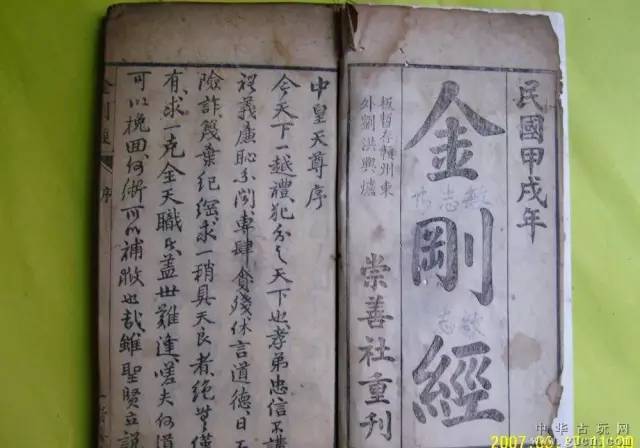 民國甲戌年
金剛經
板暫存贛州東
外劉洪興爐
崇善社重刊
中皇天尊序
今天下一越禮犯分之天下也孝弟忠信不講
禮義廉恥不聞專肆貪殘休言道德日
險詐毀棄紀綱求一稍具天良者絕無僅
有求一克全天職者蓋世難逢嗟夫何道
可以挽回何術可以補救也哉雖聖賢立說
金剛經 序
中华古玩网